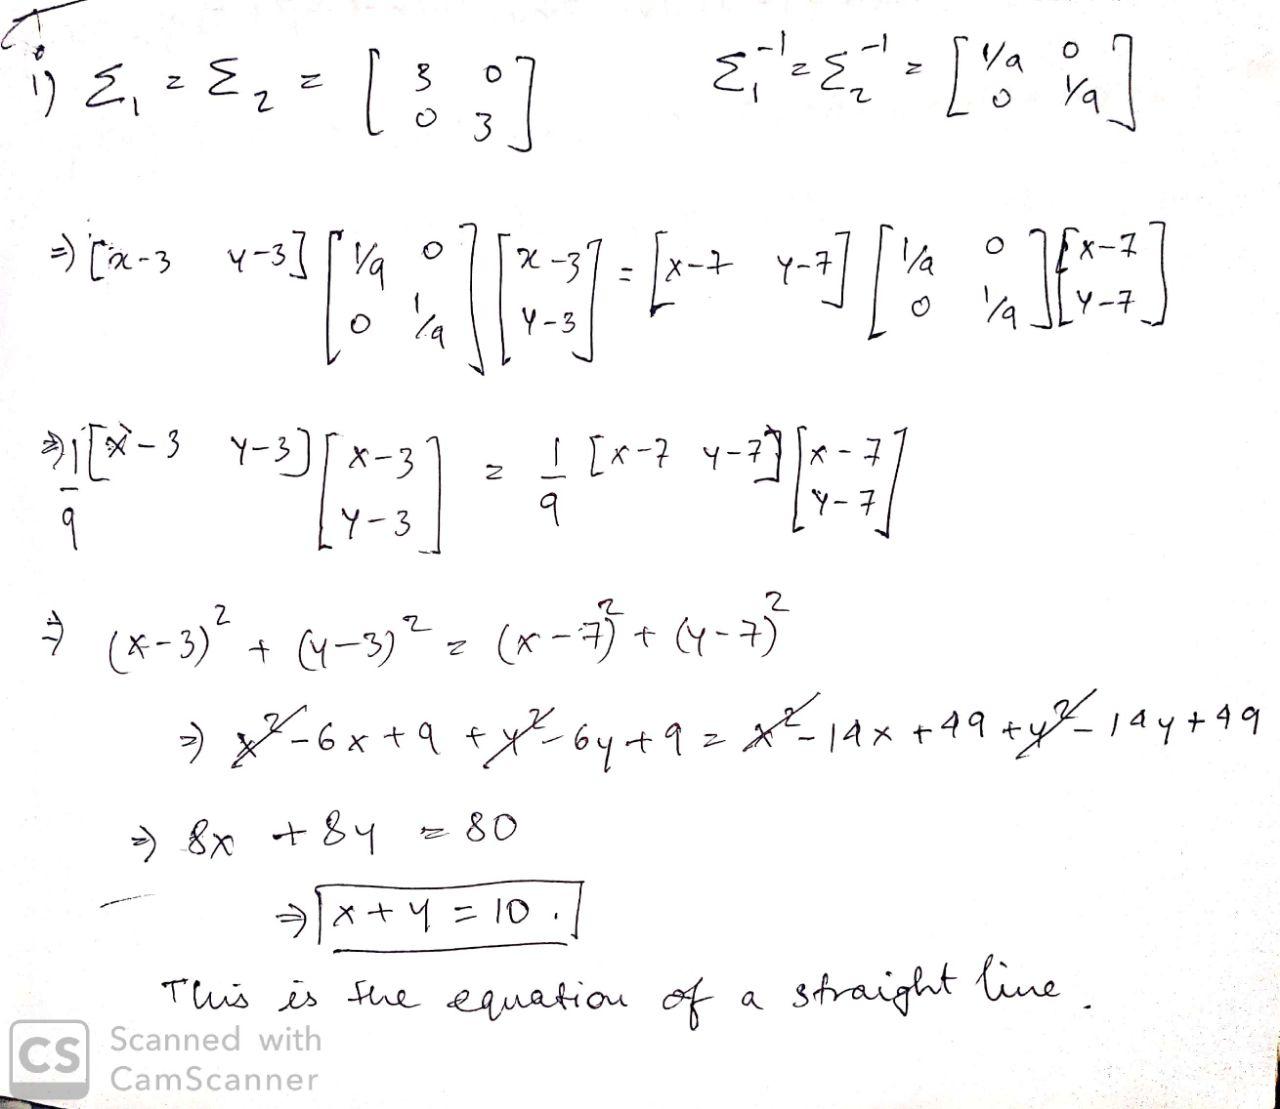 i) Σ₁ = Σ₂ = [3 0; 0 3] Σ₁⁻¹ = Σ₂⁻¹ = [1/9 0; 0 1/9]
⇒ [x-3 y-3] [1/9 0; 0 1/9] [x-3; y-3] = [x-7 y-7] [1/9 0; 0 1/9] [x-7; y-7]
⇒ 1/9 [x-3 y-3] [x-3; y-3] = 1/9 [x-7 y-7] [x-7; y-7]
⇒ (x-3)² + (y-3)² = (x-7)² + (y-7)²
⇒ x² - 6x + 9 + y² - 6y + 9 = x² - 14x + 49 + y² - 14y + 49
⇒ 8x + 8y = 80
⇒ x + y = 10.
This is the equation of a straight line.
CS Scanned with
CamScanner